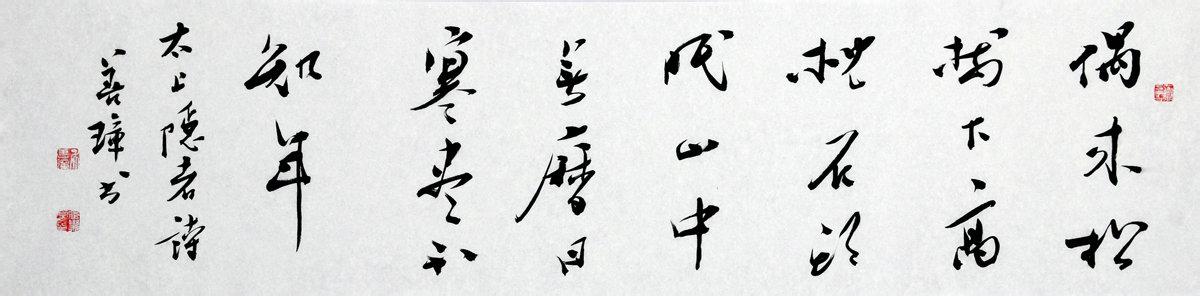 偶来松
树下高
枕石頭
眠山中
無曆日
寒尽不
知年
太上隐者詩
善璋书